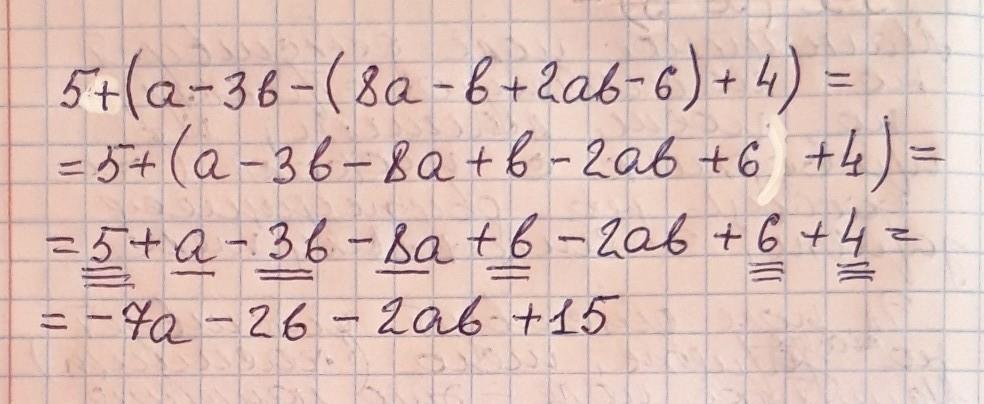 5+(a-3b-(8a-b+2ab-6)+4)=
=5+(a-3b-8a+b-2ab+6 +4)=
=5+a-3b-8a+b-2ab+6+4=
=-7a-2b-2ab+15